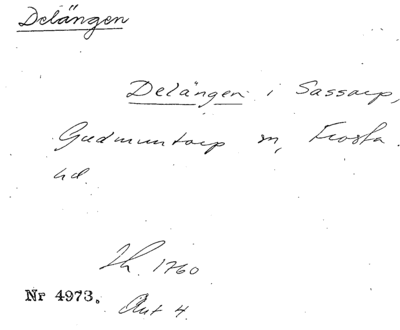 Delängen
Delängen i Sassarp,
Gudmuntorp sn, Frosta
hd.
Th. 1760
Nr 4973. Akt 4.